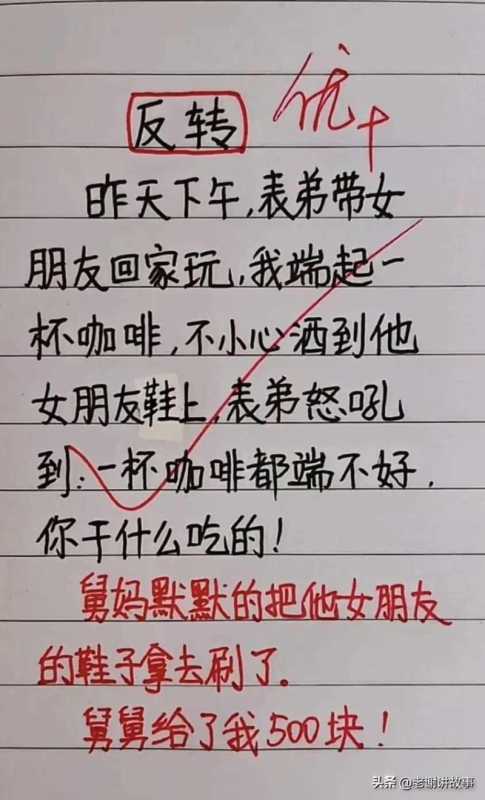 优+
反转
昨天下午,表弟带女
朋友回家玩,我端起一
杯咖啡,不小心洒到他
女朋友鞋上,表弟怒吼
到:一杯咖啡都端不好.
你干什么吃的!
舅妈默默的把他女朋友
的鞋子拿去刷了.
舅舅给了我500块!
头条 @老谢讲故事